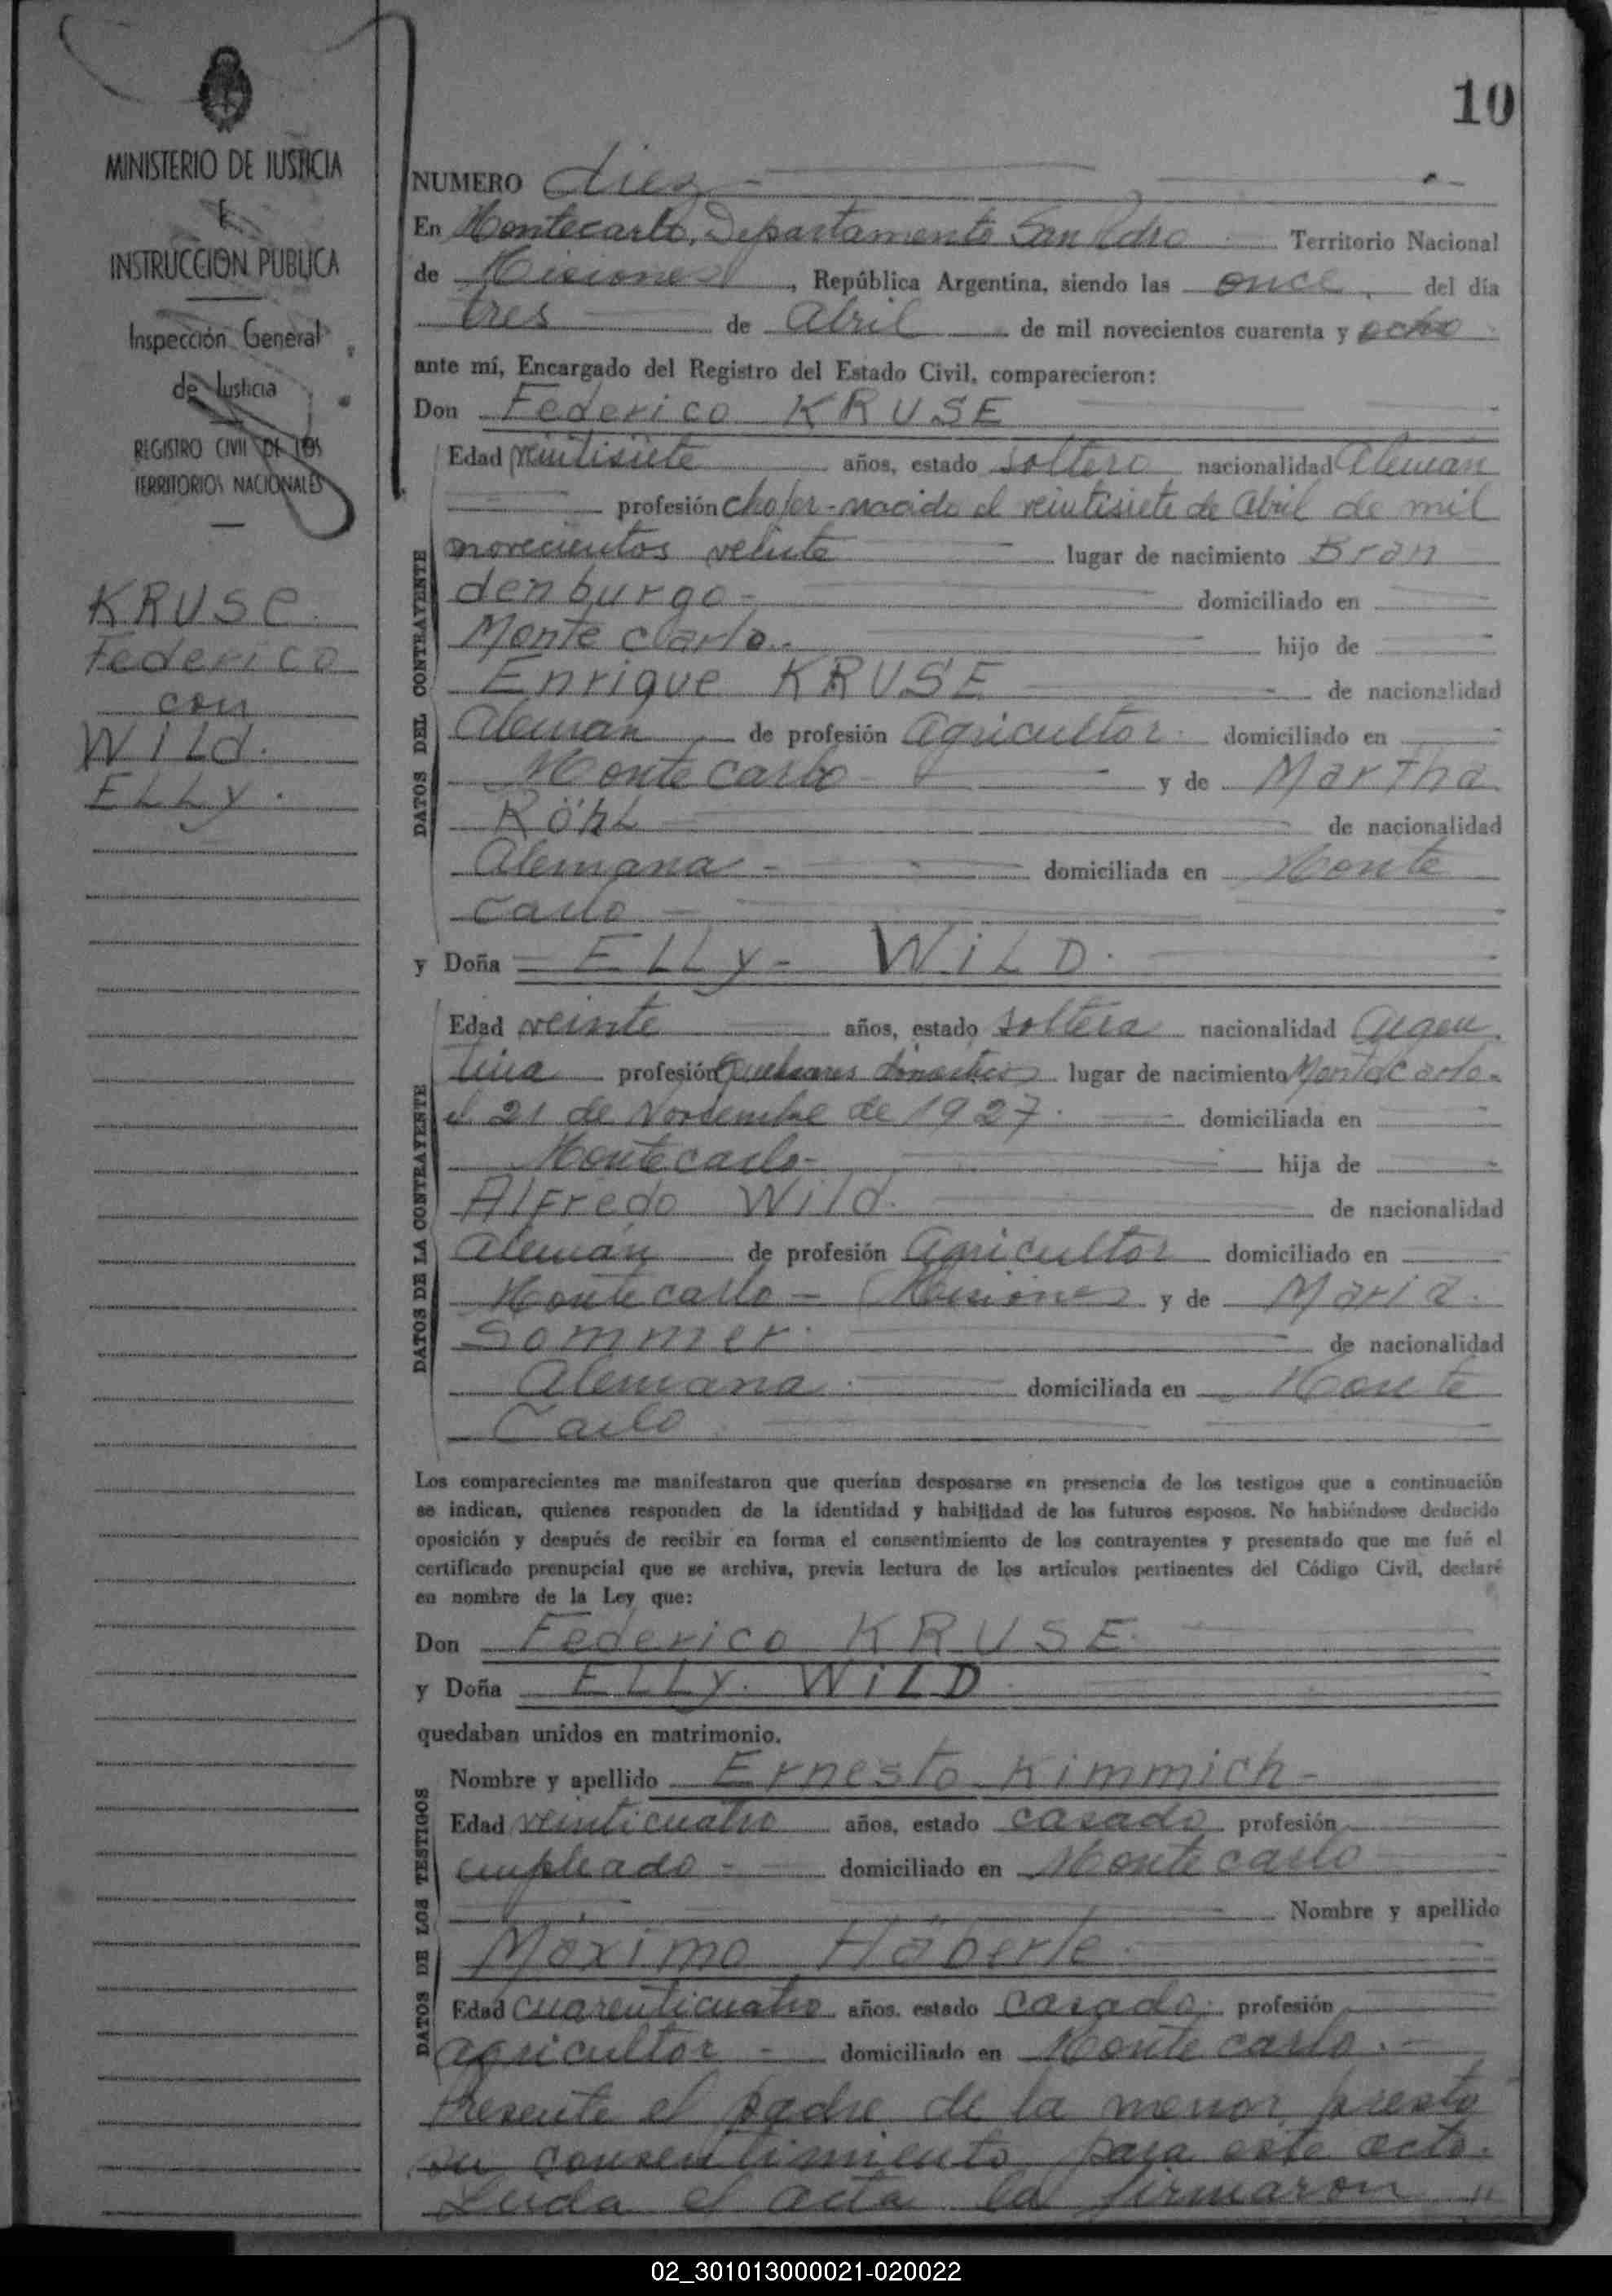 10
MINISTERIO DE JUSTICIA
E
INSTRUCCION PUBLICA
Inspección General
de Justicia
REGISTRO CIVIL DE LOS
TERRITORIOS NACIONALES
KRUSE.
Federico
con
WILd.
ELLy.
NUMERO diez
En Montecarlo, Departamento San Pedro Territorio Nacional
de Misiones, República Argentina, siendo las once, del día
tres de Abril de mil novecientos cuarenta y ocho
ante mí, Encargado del Registro del Estado Civil, comparecieron:
Don Federico KRUSE
DATOS DEL CONTRAYENTE
Edad veintisiete años, estado soltero nacionalidad Alemán
profesión chofer - nacido el veintisiete de Abril de mil
novecientos veinte lugar de nacimiento Bran
denburgo - domiciliado en
Monte Carlo.. hijo de
Enrique KRUSE de nacionalidad
Alemán de profesión Agricultor. domiciliado en
Monte Carlo y de Martha
Röhl de nacionalidad
Alemana - domiciliada en Monte
Carlo -
y Doña ELLy - WiLD.
DATOS DE LA CONTRAYENTE
Edad veinte años, estado soltera nacionalidad Argen
tina profesión Quehaceres domésticos lugar de nacimiento Montecarlo.
el 21 de Noviembre de 1927. domiciliada en
Montecarlo - hija de
Alfredo Wild. de nacionalidad
Alemán de profesión Agricultor domiciliado en
Montecarlo - Misiones y de Maria.
Sommer. de nacionalidad
Alemana. domiciliada en Monte
Carlo
Los comparecientes me manifestaron que querían desposarse en presencia de los testigos que a continuación
se indican, quienes responden de la identidad y habilidad de los futuros esposos. No habiéndose deducido
oposición y después de recibir en forma el consentimiento de los contrayentes y presentado que me fué el
certificado prenupcial que se archiva, previa lectura de los artículos pertinentes del Código Civil, declaré
en nombre de la Ley que:
Don Federico KRUSE.
y Doña ELLy. WiLD.
quedaban unidos en matrimonio.
DATOS DE LOS TESTIGOS
Nombre y apellido Ernesto Kimmich -
Edad veinticuatro años, estado casado profesión
empleado - domiciliado en Monte Carlo
Nombre y apellido
Máximo Häberle.
Edad cuarenticuatro años, estado casado. profesión
agricultor - domiciliado en Monte Carlo. -
Presente el padre de la menor, presto
su consentimiento para este acto.
Leida el acta la firmaron "
02_301013000021-020022